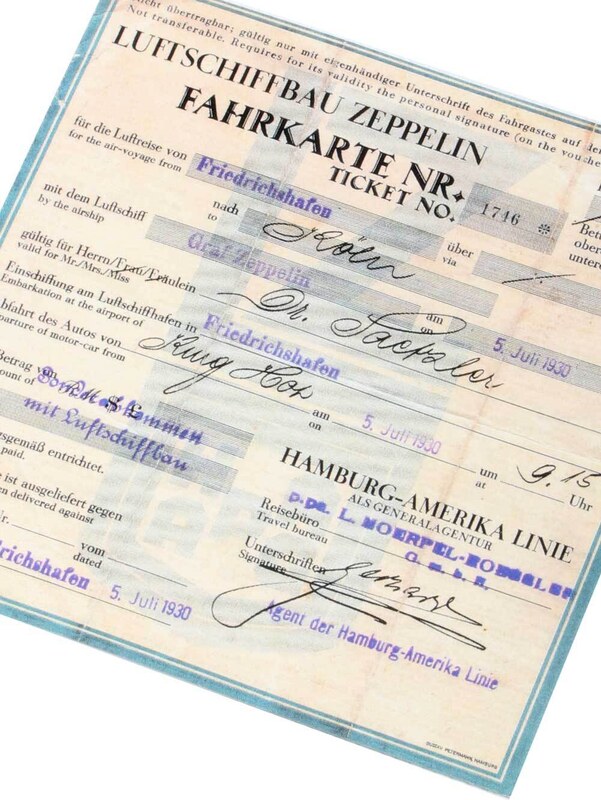 Nicht übertragbar; gültig nur mit eigenhändiger Unterschrift des Fahrgastes auf dem
Not transferable. Requires for its validity the personal signature (on the vouche
LUFTSCHIFFBAU ZEPPELIN
FAHRKARTE NR.
TICKET NO. 1746 *
für die Luftreise von Friedrichshafen nach Köln über
for the air-voyage from to via
mit dem Luftschiff Graf Zeppelin am 5. Juli 1930
by the airship on
gültig für Herrn/Frau/Fräulein Dr.
valid for Mr./Mrs./Miss
Einschiffung am Luftschiffhafen in Friedrichshafen
Embarkation at the airport of
bfahrt des Autos von am 5. Juli 1930 um 9.15 Uhr
parture of motor-car from on at
Betrag von
ount of
mit Luftschiffbau
gsgemäß entrichtet.
paid.
e ist ausgeliefert gegen
en delivered against
Nr. vom 5. Juli 1930
dated
drichshafen
HAMBURG-AMERIKA LINIE
ALS GENERALAGENTUR
Reisebüro
Travel bureau
G. m. b. H.
Unterschriften
Signature
Agent der Hamburg-Amerika Linie